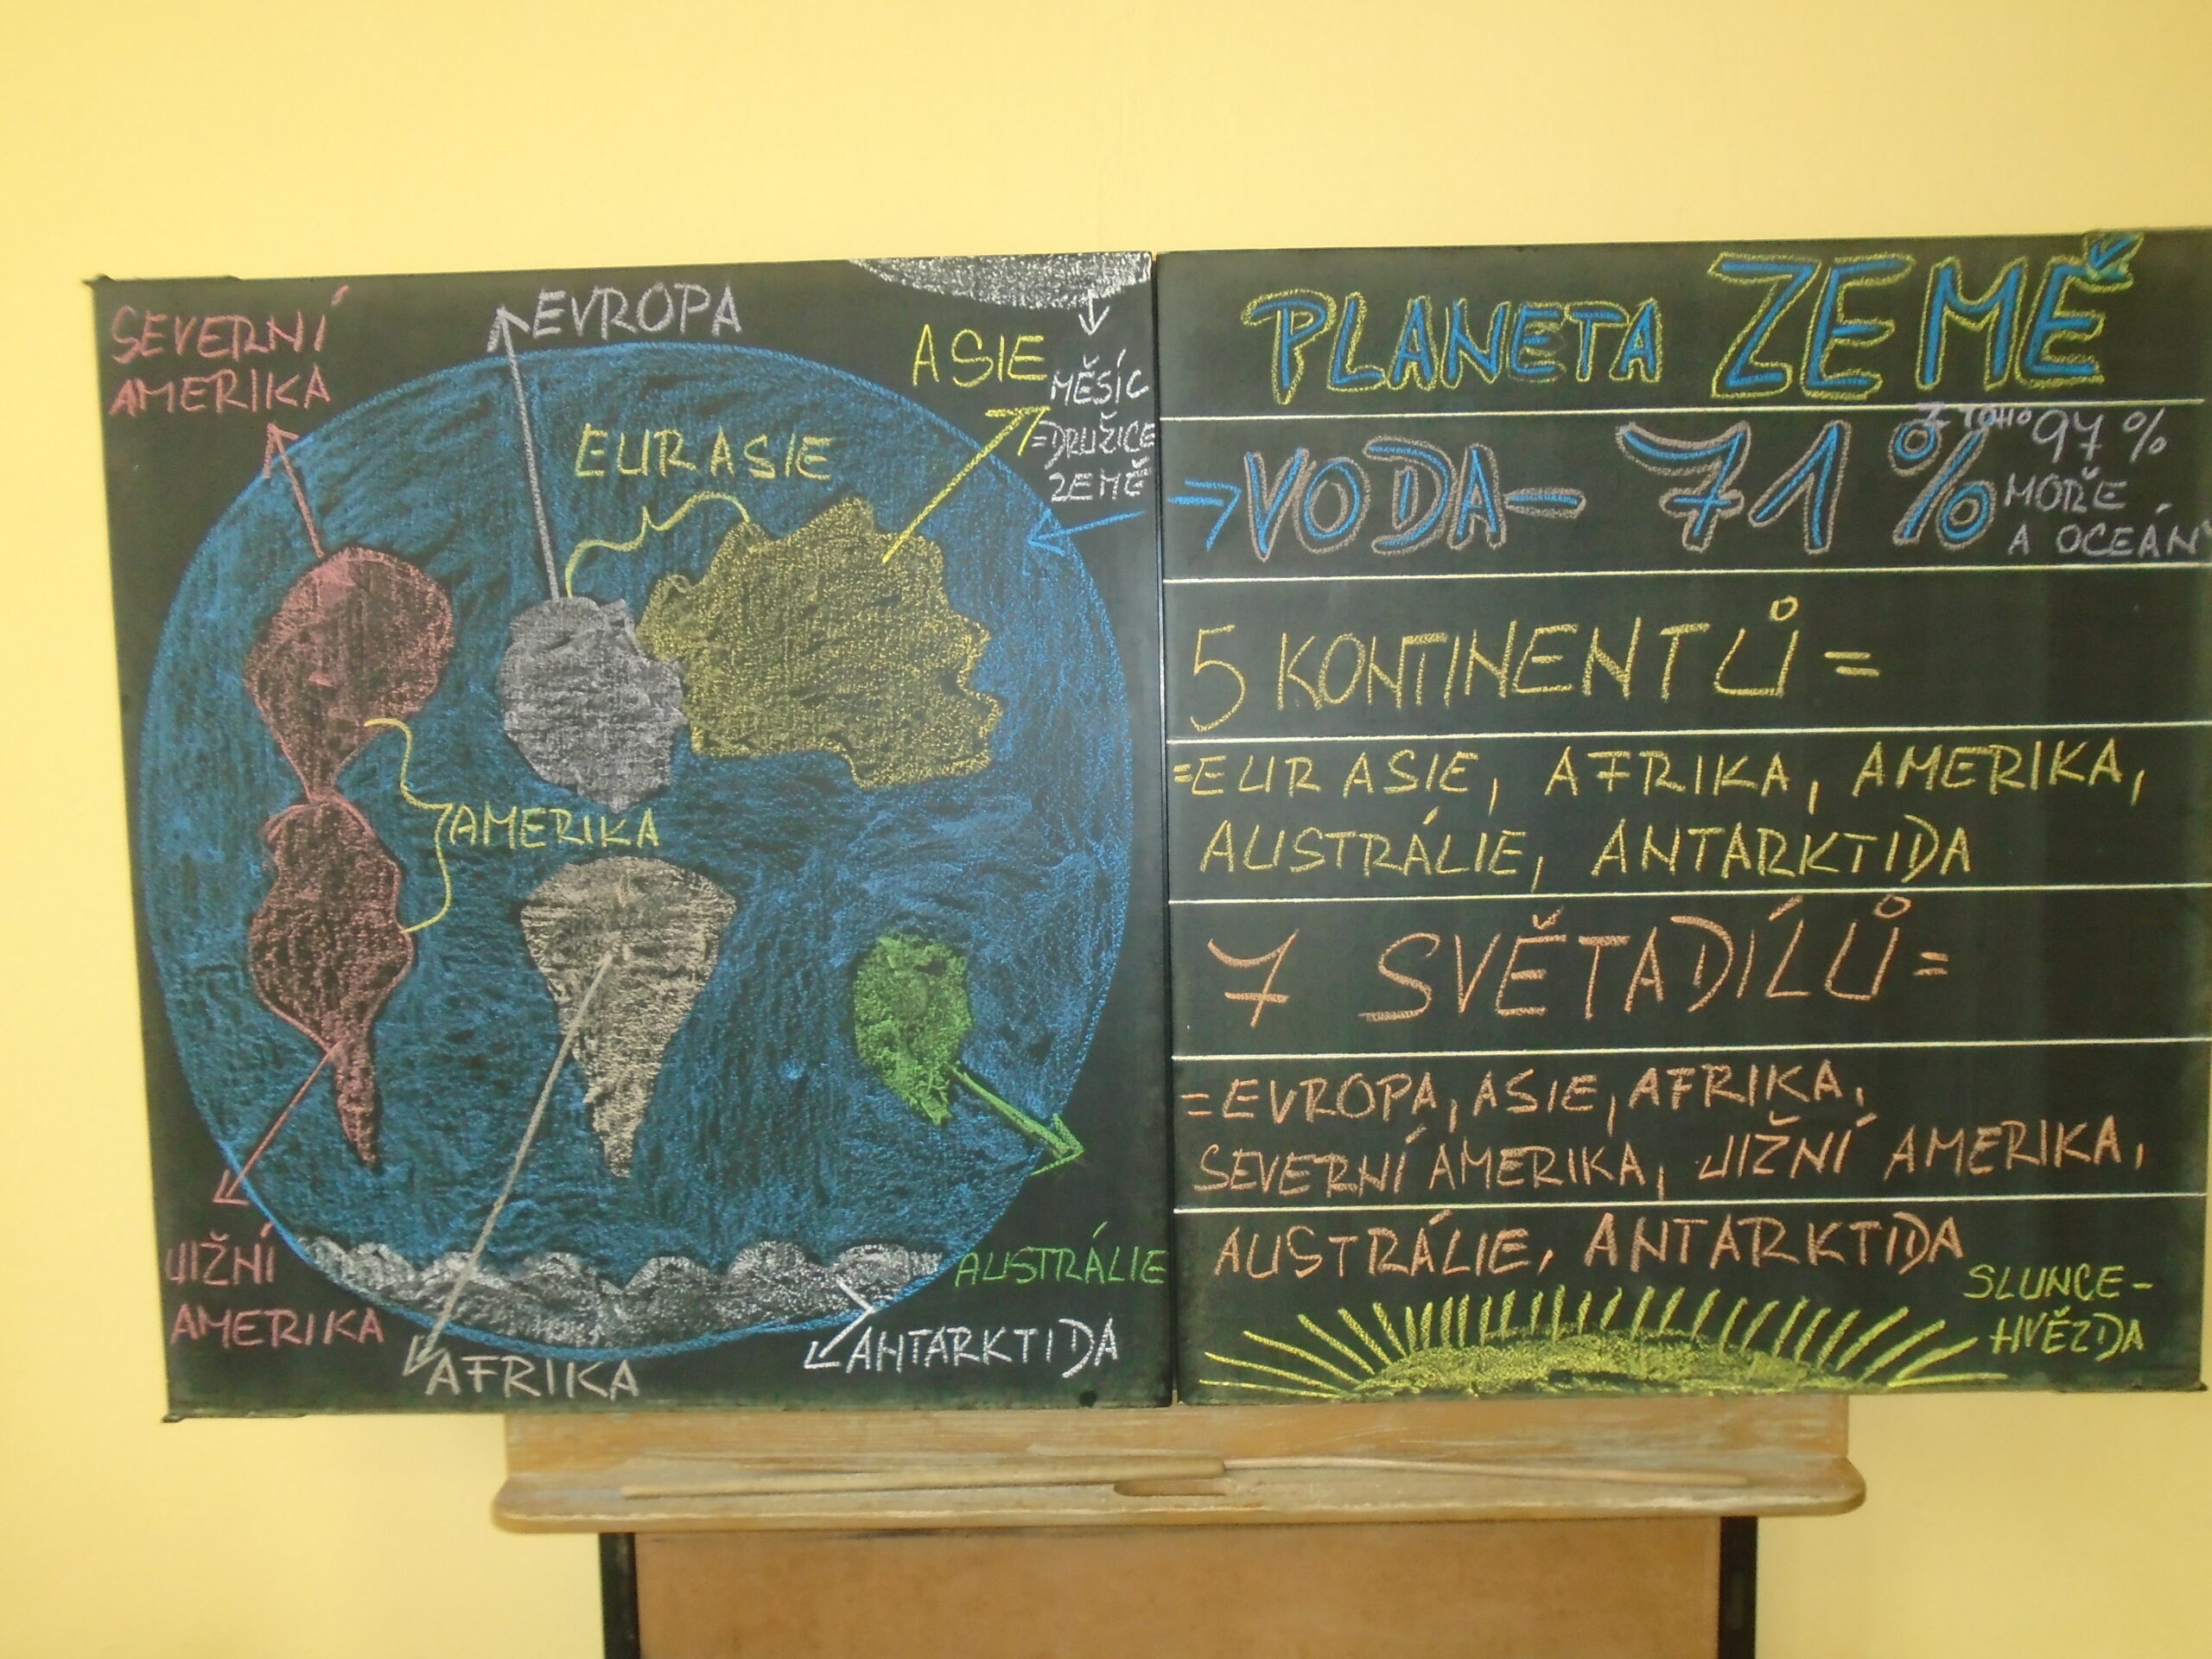 SEVERNÍ
AMERIKA
EVROPA
ASIE
MĚSÍC
=DRUŽICE
ZEMĚ
EURASIE
AMERIKA
JIŽNÍ
AMERIKA
AFRIKA
AUSTRÁLIE
ANTARKTIDA
PLANETA ZEMĚ
VODA – 71 %
Z TOHO 97 %
MOŘE
A OCEÁNY
5 KONTINENTŮ =
=EURASIE, AFRIKA, AMERIKA,
AUSTRÁLIE, ANTARKTIDA
7 SVĚTADÍLŮ =
=EVROPA, ASIE, AFRIKA,
SEVERNÍ AMERIKA, JIŽNÍ AMERIKA,
AUSTRÁLIE, ANTARKTIDA
SLUNCE –
HVĚZDA